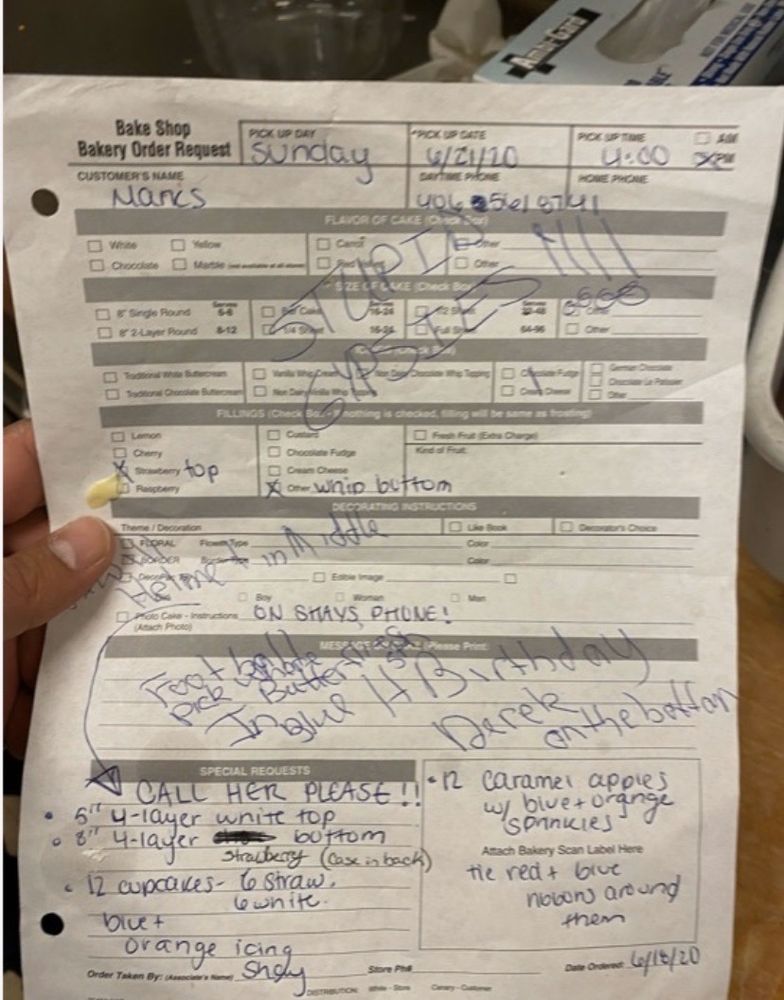 Amer-Care
Bake Shop
Bakery Order Request
PICK UP DAY
Sunday
*PICK UP DATE
6/21/20
PICK UP TIME
4:00
AM
PM
CUSTOMER'S NAME
Marks
DAYTIME PHONE
HOME PHONE
406
FLAVOR OF CAKE (Check Box)
White
Yellow
Carrot
Other
Chocolate
Marble
Red Velvet
Other
STUPID
GYPSIES !!!!
SIZE OF CAKE (Check Box)
8" Single Round
Serves
6-8
Bar Cake
Serves
16-24
1/2 Sheet
Serves
32-48
Other
8" 2-Layer Round
8-12
1/4 Sheet
16-24
Full Sheet
64-96
Other
(Check Box)
Traditional White Buttercream
Vanilla Whip Cream
Non Dairy Chocolate Whip Topping
Chocolate Fudge
German Chocolate
Traditional Chocolate Buttercream
Non Dairy Vanilla Whip
Cream Cheese
Chocolate La Patissier
Other
FILLINGS (Check Box - If nothing is checked, filling will be same as frosting)
Lemon
Custard
Fresh Fruit (Extra Charge)
Cherry
Chocolate Fudge
Kind of Fruit:
Strawberry top
Cream Cheese
Raspberry
Other whip buttom
DECORATING INSTRUCTIONS
Theme / Decoration
Like Book
Decorator's Choice
FLORAL
Flower Type
Color
BORDER
Color
Helmet in Middle
Edible Image
Boy
Woman
Man
Photo Cake - Instructions ON SHAYS PHONE!
(Attach Photo)
MESSAGE (Please Print)
Football
pick
In blue H Birthday
Derek
on the bottom
SPECIAL REQUESTS
CALL HER PLEASE!!
6" 4-layer white top
8" 4-layer bottom
strawberry (Case in back)
12 cupcakes- 6 straw.
6 white.
blue +
orange icing
12 caramel apples
w/ blue + orange
sprinkles
Attach Bakery Scan Label Here
tie red + blue
ribbons around
them
Order Taken By: (Associate's Name) Shay
Store Ph#
Date Ordered: 6/18/20
DISTRIBUTION:
White - Store
Canary - Customer